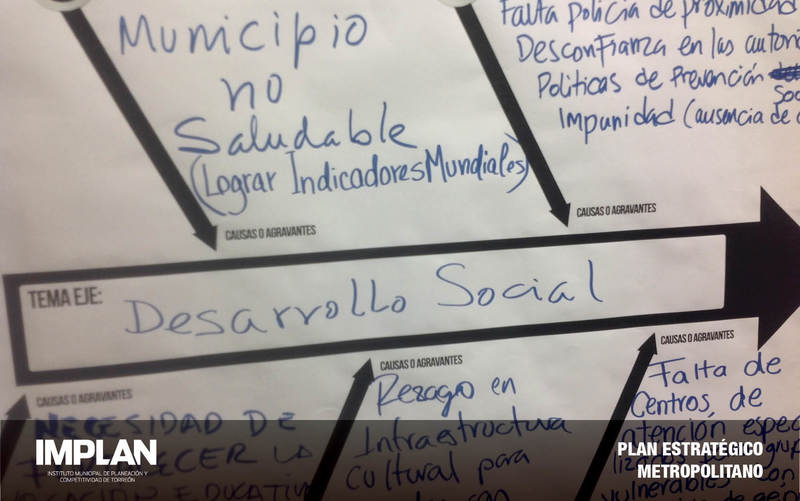 Municipio
no
Saludable
(Lograr Indicadores Mundiales)
Falta policía de proximidad
Desconfianza en las
Políticas de Prevención
Impunidad (ausencia de
CAUSAS O AGRAVANTES
CAUSAS O AGRAVANTES
TEMA EJE:
Desarrollo Social
CAUSAS O AGRAVANTES
NECESIDAD DE
LA
CAUSAS O AGRAVANTES
Rezago en
Infraestructura
Cultural para
CAUSAS O AGRAVANTES
Falta de
Centros de
IMPLAN
INSTITUTO MUNICIPAL DE PLANEACIÓN Y
COMPETITIVIDAD DE TORREÓN
PLAN ESTRATÉGICO
METROPOLITANO